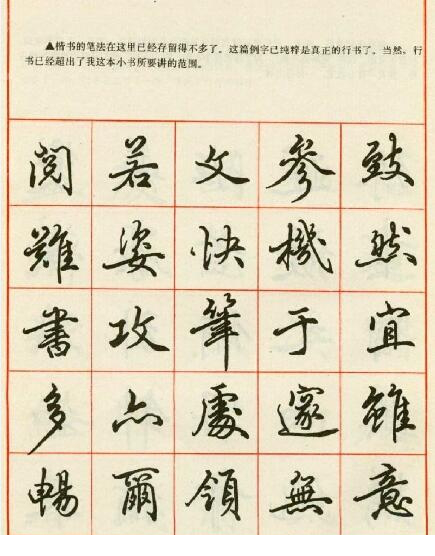 ▲楷书的笔法在这里已经存留得不多了。这篇例字已纯粹是真正的行书了。当然，行
书已经超出了我这本小书所要讲的范围。
致然宜雖意
參機于邃無
文快筆處領
若姿攻爾
閱難書多暢